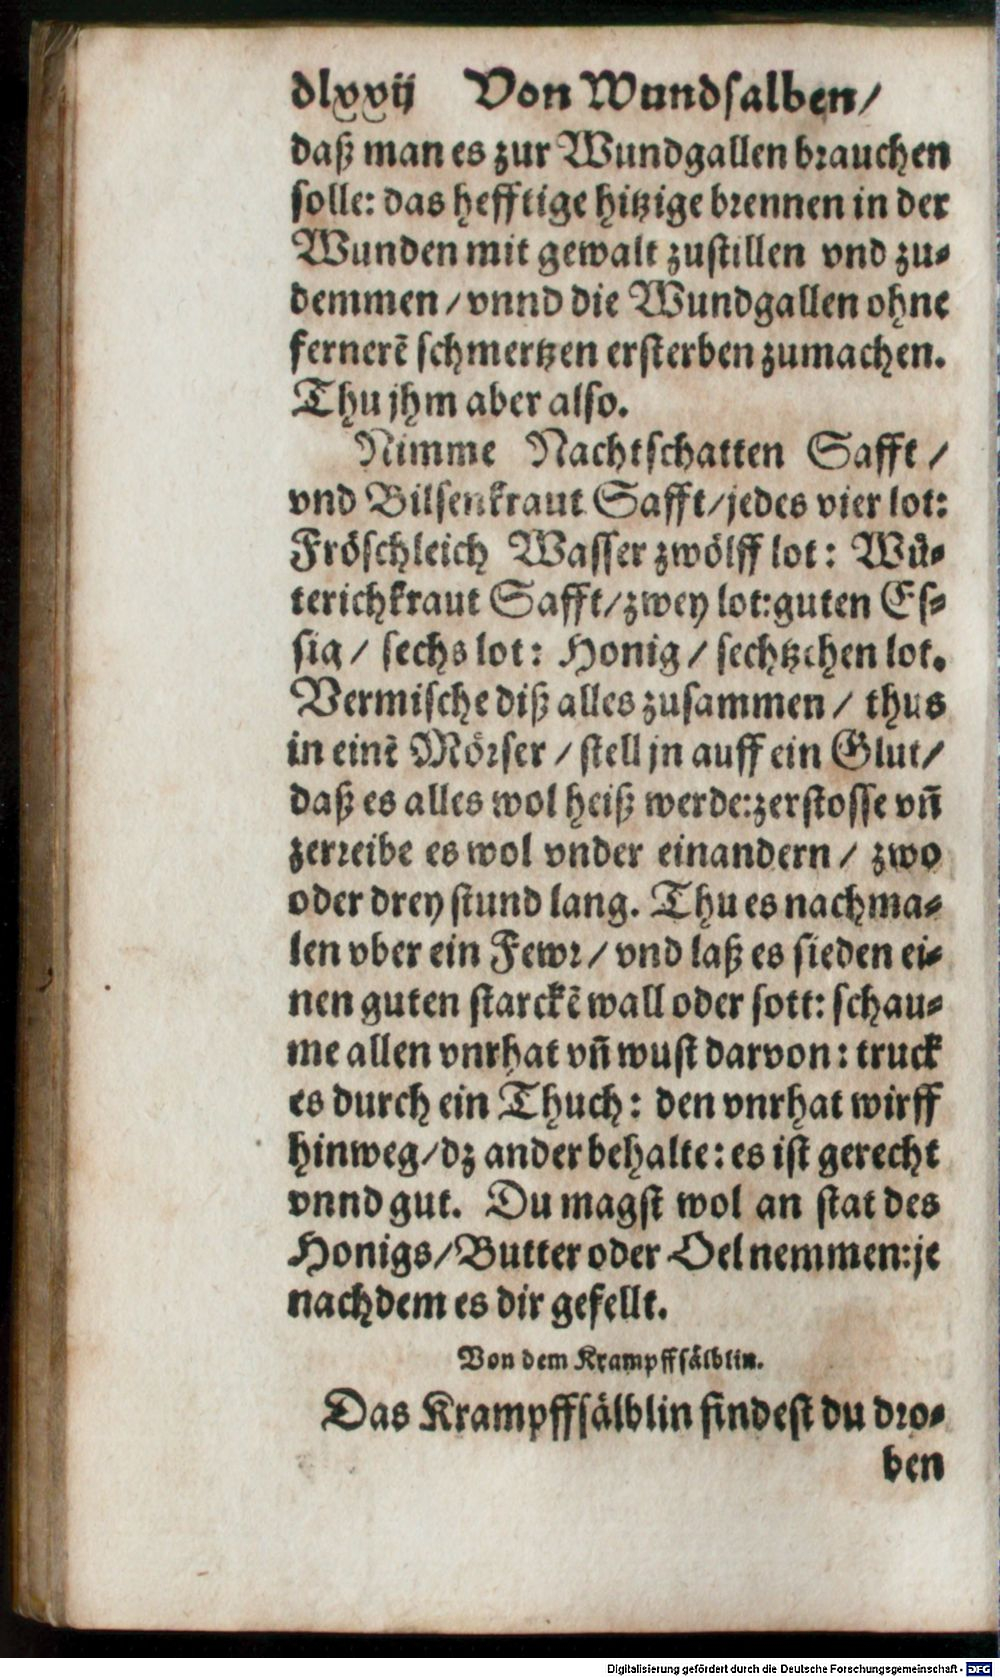 dlxxij Von Wundsalben/
daß man es zur Wundgallen brauchen
solle: das hefftige hitzige brennen in der
Wunden mit gewalt zustillen vnd zu⸗
demmen/vnnd die Wundgallen ohne
fernerẽ schmertzen ersterben zumachen.
Thu jhm aber also.
Nimme Nachtschatten Safft/
vnd Bilsenkraut Safft/jedes vier lot:
Fröschleich Wasser zwölff lot: Wů⸗
terichkraut Safft/zwey lot:guten Es⸗
sig/ sechs lot: Honig/ sechtzehen lot.
Vermische diß alles zusammen/ thus
in einẽ Mörser/stell jn auff ein Glut/
daß es alles wol heiß werde:zerstosse vñ
zerreibe es wol vnder einandern/ zwo
oder drey stund lang. Thu es nachma⸗
len vber ein Fewr/vnd laß es sieden ei⸗
nen guten starckẽ wall oder sott: schau⸗
me allen vnrhat vñ wust darvon: truck
es durch ein Thuch: den vnrhat wirff
hinweg/dz ander behalte: es ist gerecht
vnnd gut. Du magst wol an stat des
Honigs/Butter oder Oel nemmen:je
nachdem es dir gefellt.
Von dem Krampffsälblin.
Das Krampffsälblin findest du dro⸗
ben
Digitalisierung gefördert durch die Deutsche Forschungsgemeinschaft - DFG